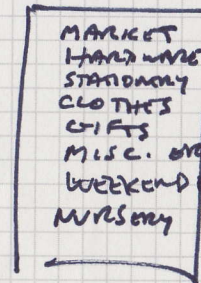 MARKET
HARDWARE
STATIONERY
CLOTHES
GIFTS
MISC.
WEEKEND
NURSERY